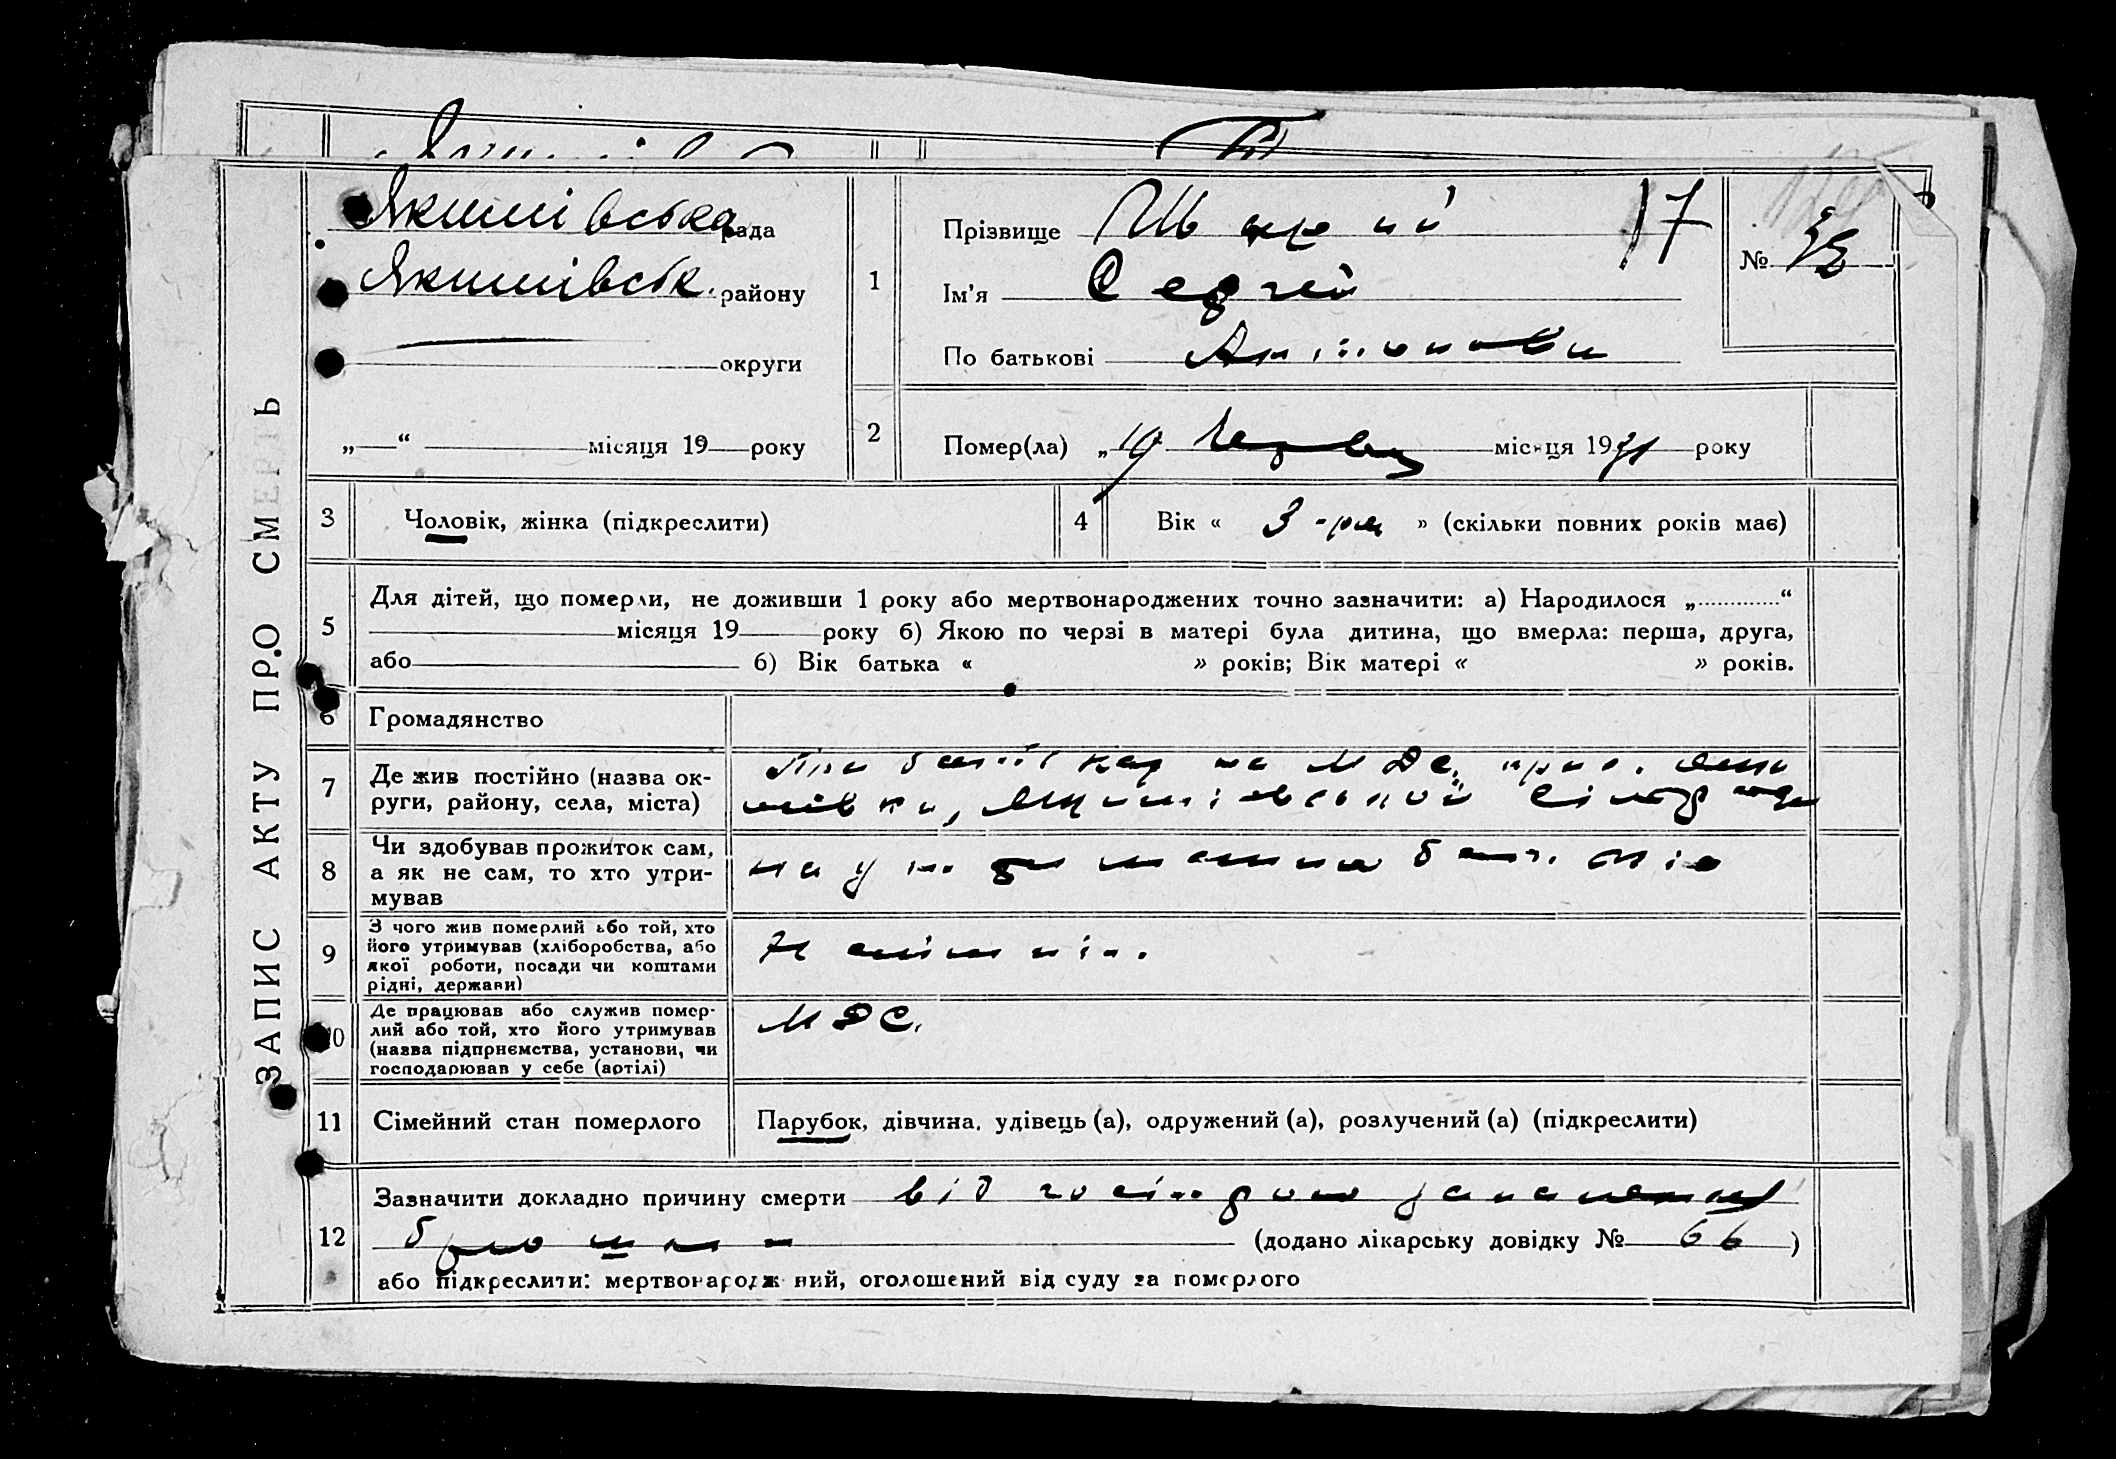 ЗАПИС АКТУ ПРО СМЕРТЬ
Якимівська рада
Якимівськ. району
округи
„ “ місяця 19 року
1
Прізвище 17
Ім'я Сергей
По батькові
№
2
Помер(ла) „19 червця місяця 1931 року
3
Чоловік, жінка (підкреслити)
4
Вік « 3-ри » (скільки повних років має)
5
Для дітей, що померли, не доживши 1 року або мертвонароджених точно зазначити: а) Народилося „ “
місяця 19 року б) Якою по черзі в матері була дитина, що вмерла: перша, друга,
або б) Вік батька « » років; Вік матері « » років.
6
Громадянство
7
Де жив постійно (назва ок-
руги, району, села, міста)
При МДС
8
Чи здобував прожиток сам,
а як не сам, то хто утри-
мував
на утриманні
9
З чого жив померлий або той, хто
його утримував (хліборобства, або
якої роботи, посади чи коштами
рідні, держави)
10
Де працював або служив помер-
лий або той, хто його утримував
(назва підприємства, установи, чи
господарював у себе (артілі)
МДС.
11
Сімейний стан померлого
Парубок, дівчина, удівець (а), одружений (а), розлучений (а) (підкреслити)
12
Зазначити докладно причину смерти від гострого запалення
(додано лікарську довідку № 66 )
або підкреслити: мертвонароджений, оголошений від суду за померлого